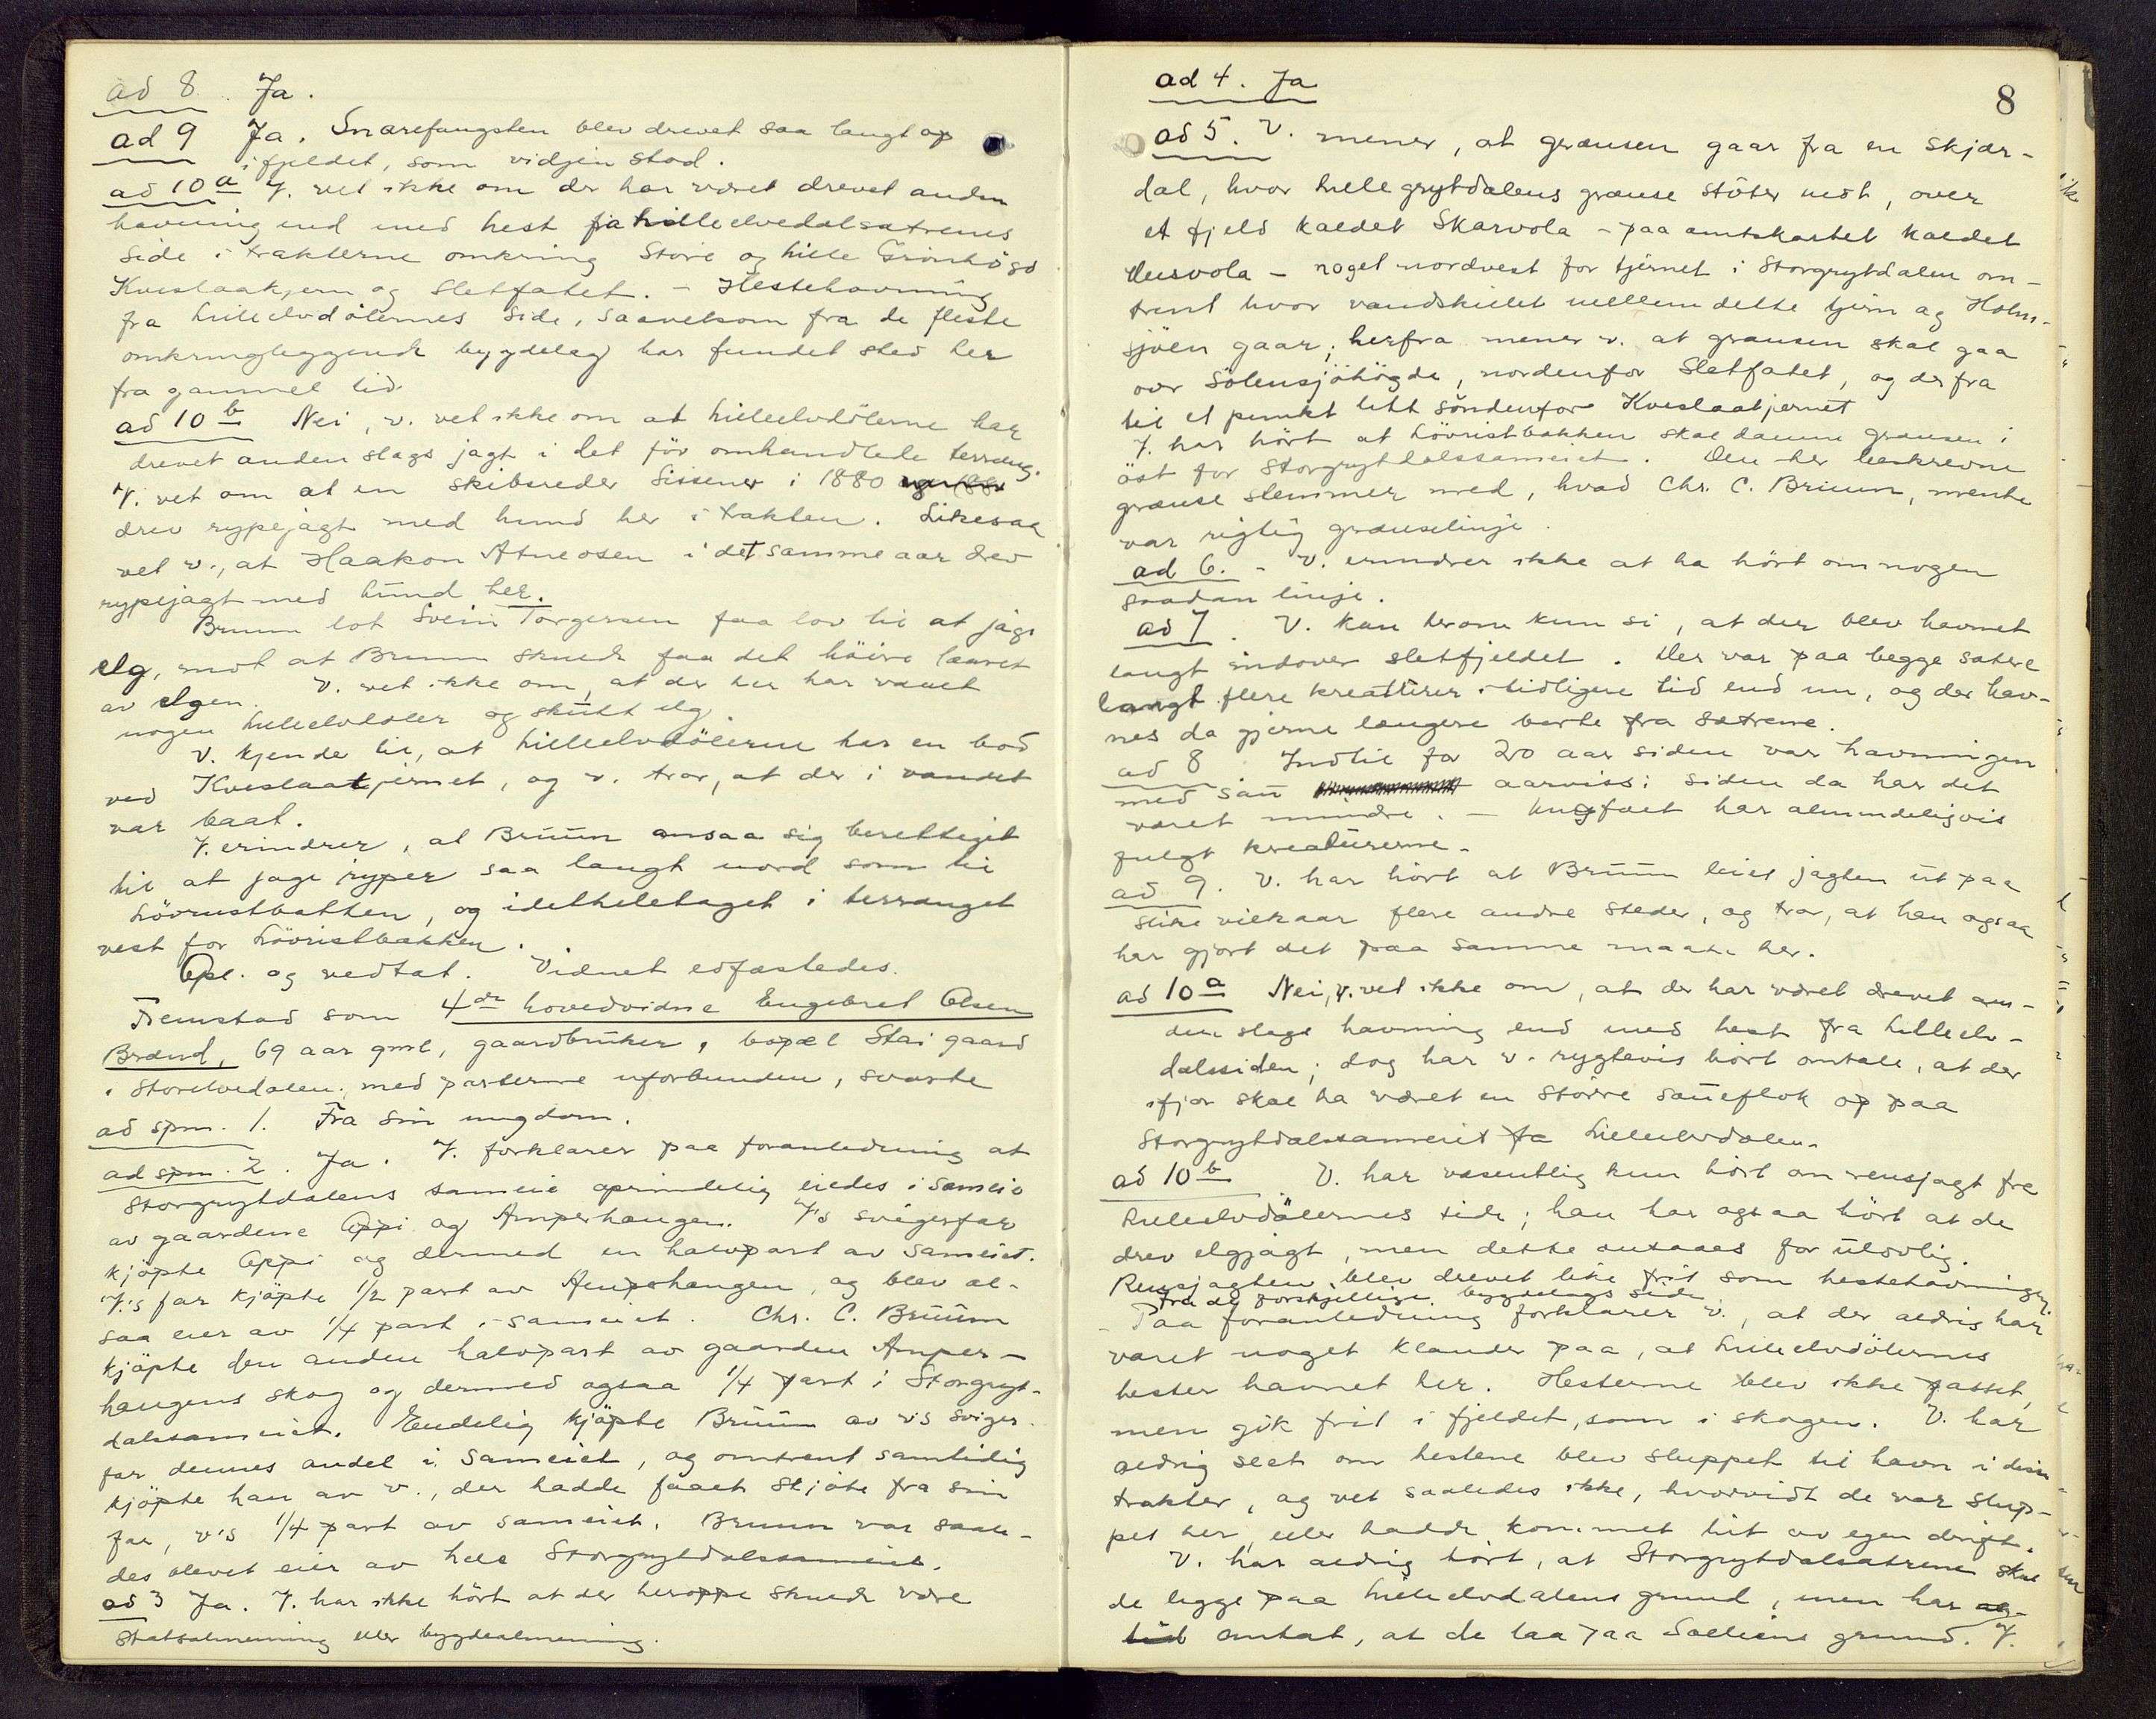 ad 8. Ja.
ad 9 Ja. Snarefangsten blev drevet saa langt op
i fjeldet, som vidjen stod.
ad 10 a V. vet ikke om der har været drevet anden
havning end med hest fra Lilleelvedalsætrenes
side i trakterne omkring Store og Lille Grönhögd
Kveslaatjern og Sletfatet. - Hestehavning
fra Lilleelvdölernes side, saavelsom fra de fleste
omkringliggende bygdelag har fundet sted her
fra gammel tid.
ad 10 b Nei, v. vet ikke om at Lilleelvdölerne har
drevet anden slags jagt i det för omhandlede terræng.
V. vet om at en skibsreder Sissener i 1880
drev rypejagt med hund her i trakten. Likesaa
vet v., at Haakon Atneosen i det samme aar drev
rypejagt med hund her.
Bruun lot Svein Torgersen faa lov til at jage
elg, mot at Bruun skulde faa det höire laaret
av elgen. V. vet ikke om, at der her har været
nogen Lilleelvdöler og skutt elg.
V. kjender til, at Lilleelvdölerne har en bod
ved Kveslaatjernet, og v. tror, at der i vandet
var baat.
V. erindrer, at Bruun ansaa sig berettiget
til at jage ryper saa langt nord som til
Lövristbakken, og idetheletaget i terrænget
vest for Lövristbakken.
Opl. og vedtat. Vidnet edfæstedes.
Fremstod som 4de hovedvidne Engebret Olsen
Brænd, 69 aar gml, gaardbruker, bopæl Stai gaard
i Storelvedalen, med parterne uforbunden, svarte
ad spm. 1. Fra sin ungdom.
ad spm. 2. Ja. V. forklarer paa foranledning at
Storgrytdalens sameie oprindelig eiedes i sameie
av gaardene Oppi og Amperhaugen. V's svigerfar
kjöpte Oppi og dermed en halvpart av sameiet.
V.'s far kjöpte 1/2 part av Amperhaugen, og blev al-
saa eier av 1/4 part i sameiet. Chr. C. Bruun
kjöpte den anden halvpart av gaarden Amper-
haugens skog og dermed ogsaa 1/4 part i Storgryt-
dalssameiet. Endelig kjöpte Bruun av v's sviger-
far dennes andel i sameiet, og omtrent samtidig
kjöpte han av v., der hadde faaet skjöte fra sin
far, v's 1/4 part av sameiet. Bruun var saale-
des blevet eier av hele Storgrytdalssameiet.
ad 3 Ja. V. har ikke hört at der heroppe skulde være
Statsalmenning eller bygdealmenning.
8
ad 4. Ja
ad 5. V. mener, at grænsen gaar fra en Skjær-
dal, hvor Lillegrytdalens grænse stöter mot, over
et fjeld kaldet Skarvola - paa amtskartet kaldet
Uusvola - noget nordvest for tjernet i Storgrytdalen om-
trent hvor vandskillet mellem dette tjern og Holm-
sjöen gaar; herfra mener v. at grænsen skal gaa
over Sölensjöhögde, nordenfor Sletfatet, og derfra
til et punkt litt söndenfor Kveslaatjernet
V. har hört at Lövristbakken skal danne grænsen i
öst for Storgrytdalssameiet. Den her beskrevne
grænse stemmer med, hvad Chr. C. Bruun, mente
var rigtig grænselinje.
ad 6. - V. erindrer ikke at ha hört om nogen
saadan linje.
ad 7. V. kan herom kun si, at der blev havnet
langt indover sletfjeldet. Der var paa begge sætere
langt flere kreatürer i tidligere tid end nu, og der hav-
nes da gjerne længere borte fra sætrene.
ad 8 Indtil for 20 aar siden var havningen
med sau aarviss: siden da har det
været mindre. - Ungfæet har almindeligvis
fulgt kreatürerne.
ad 9. V. har hört at Bruun leiet jagten ut paa
slike vilkaar flere andre steder, og tror, at han ogsaa
har gjort det paa samme maate her.
ad 10 a Nei, v. vet ikke om, at der har været drevet an-
den slags havning end med hest fra Lilleelv-
dalssiden; dog har v. rygtevis hört omtale, at der
ifjor skal ha været en större saueflok op paa
Storgrytdalssameiet fra Lilleelvdalen.
ad 10 b V. har væsentlig kun hört om rensjagt fra
Lilleelvdölernes side; han har ogsaa hört at de
drev elgjagt, men dette ansaaes for ulovlig.
Rensjagten blev drevet like frit som hestehavningen
fra de forskjellige bygdelags side.
- Paa foranledning forklarer v., at der aldrig har
været noget klander paa, at Lilleelvdölernes
hester havnet her. Hestene blev ikke passet,
men gik frit i fjeldet, som i skogen. V. har
aldrig seet om hestene blev sluppet til havn i disse
trakter, og vet saaledes ikke, hvorvidt de var slup-
pet her, eller hadde kommet hit av egen drift.
V. har aldrig hört, at Storgrytdalsætrene skul
de ligge paa Lilleelvdalens grund, men har al-
tid antat, at de laa paa Solliens grund. V.